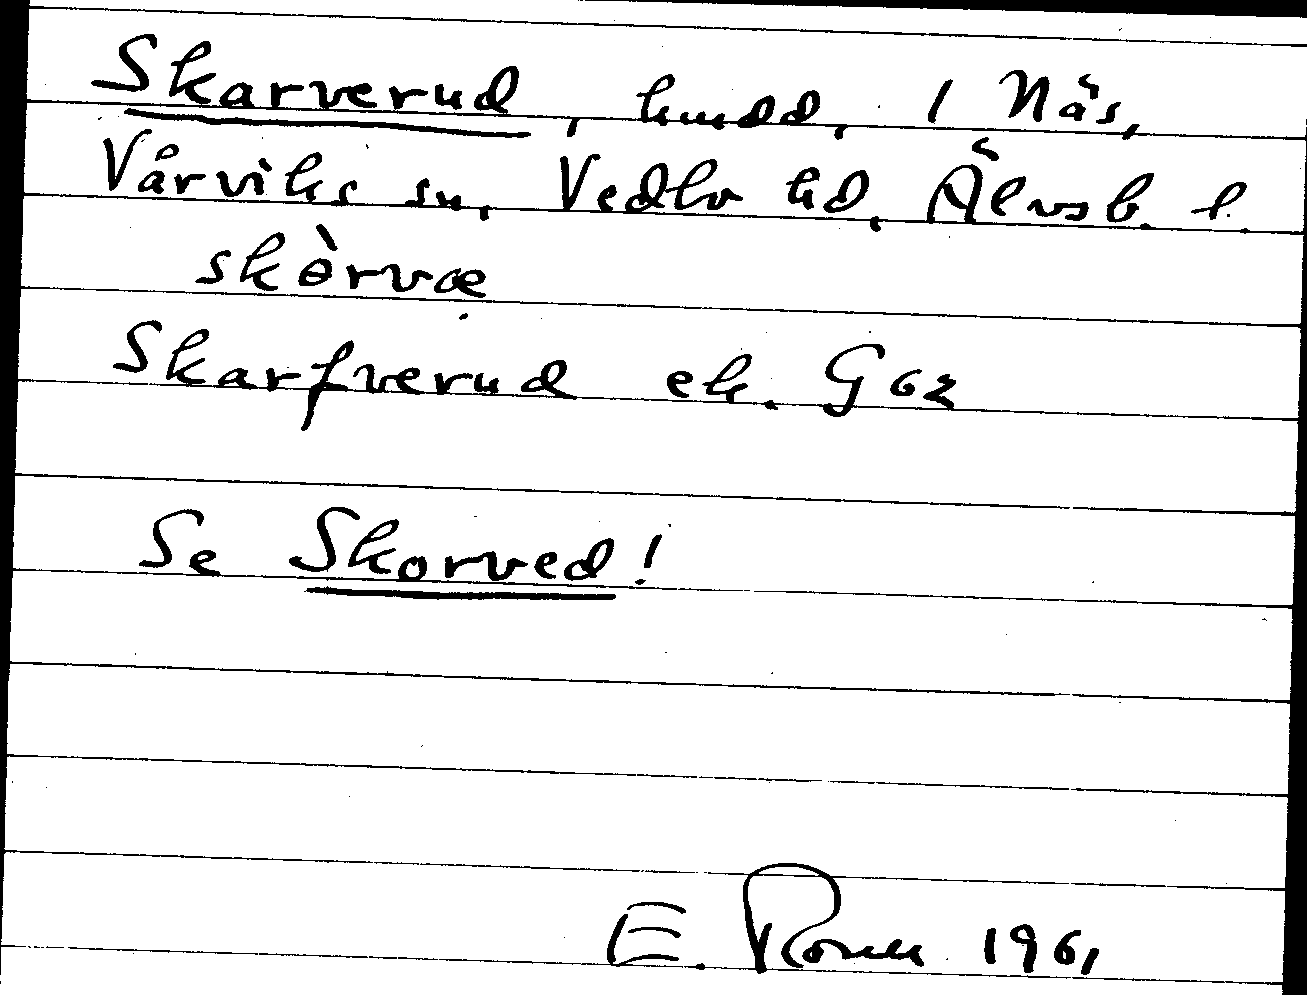 Skarverud, hmdd, 1 Näs,
Vårviks sn, Vedbo hd, Älvsb. l.
skòrvæ
Skarfverud ek. G62
Se Skorved!
E. 1961